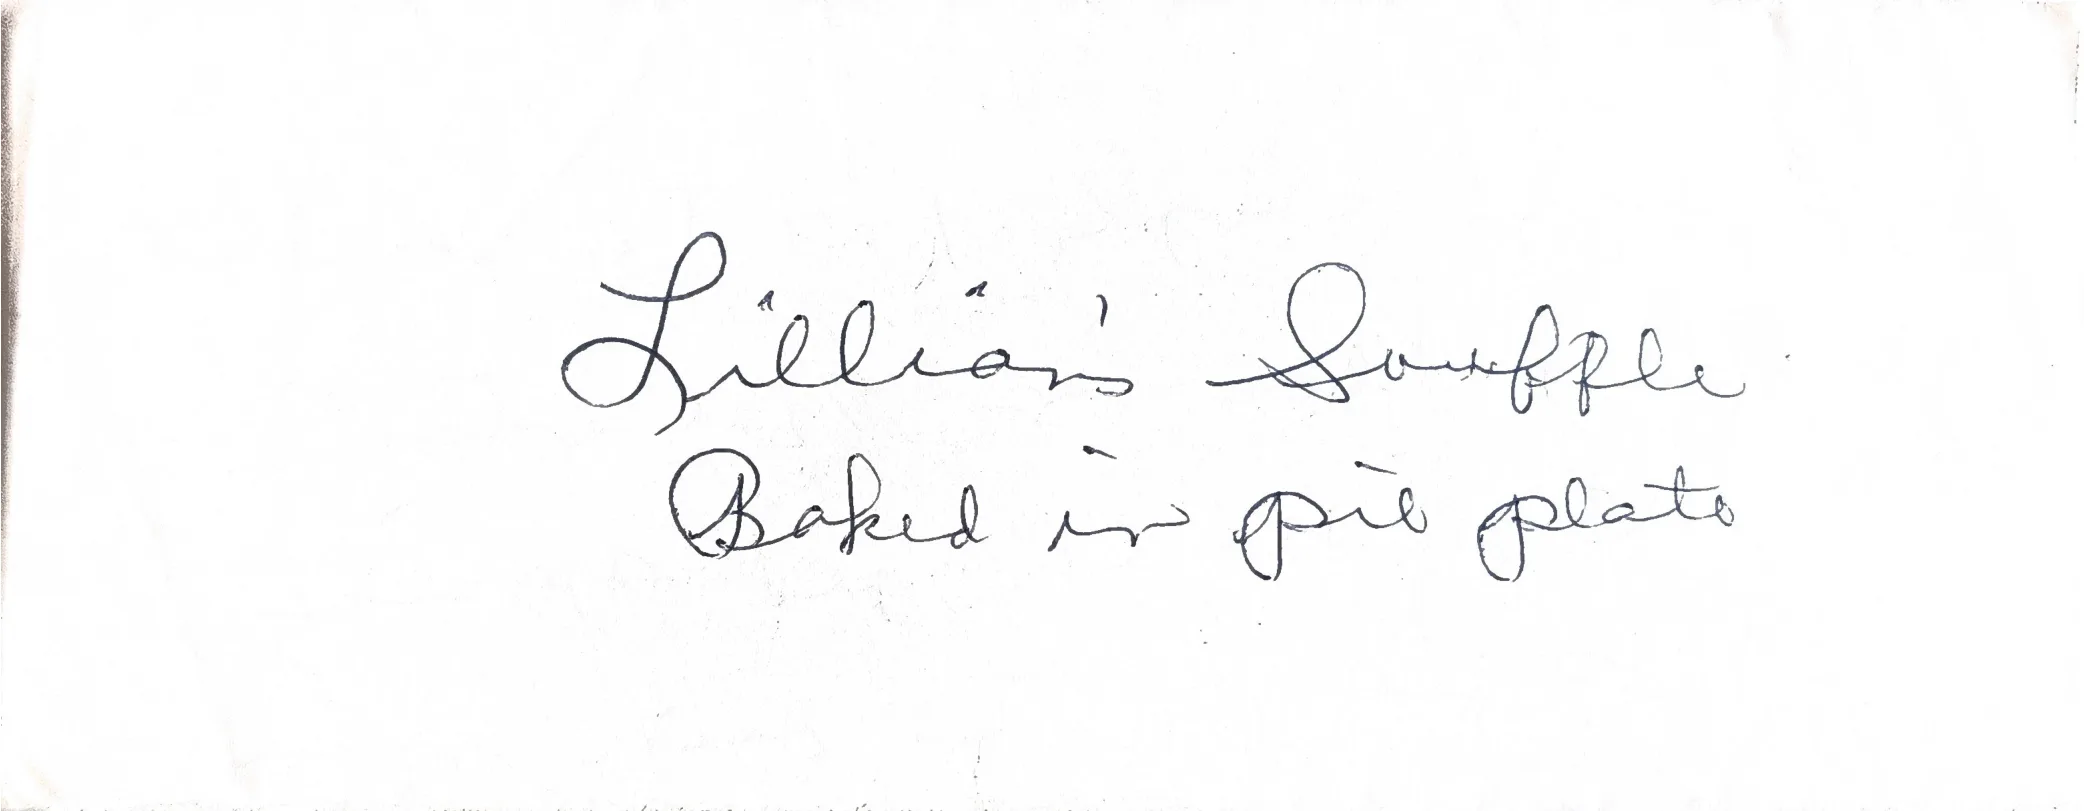 Lillian's Souffle
Baked in pie plate